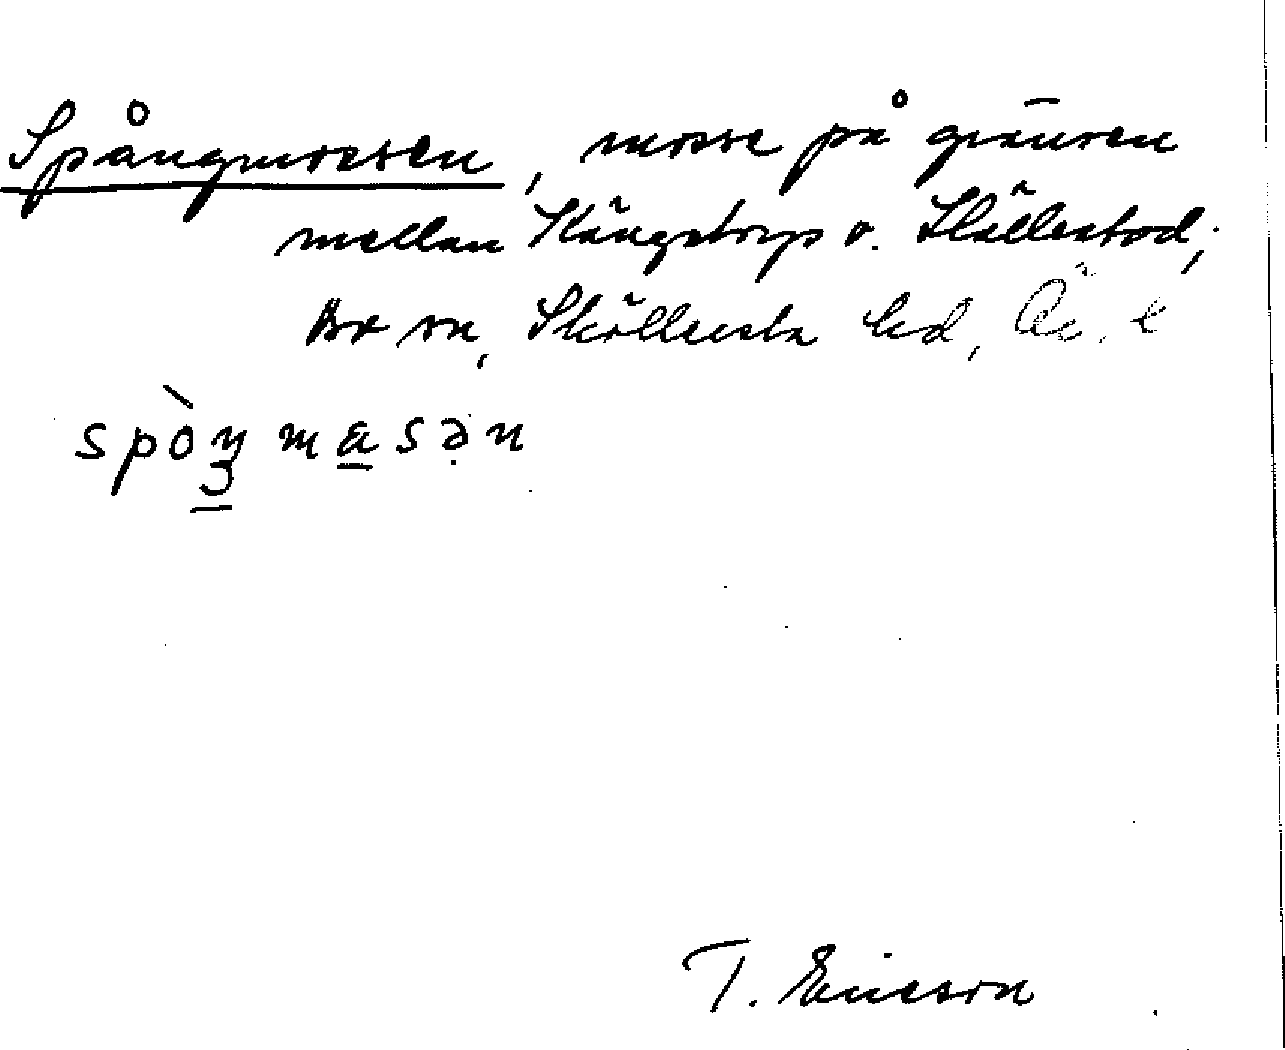 Spångmossen, mosse på gränsen
mellan Kängstorp o. Skällestad;
Bo sn, Sköllersta hd, Ö
spòŋmasən
T. Ericson